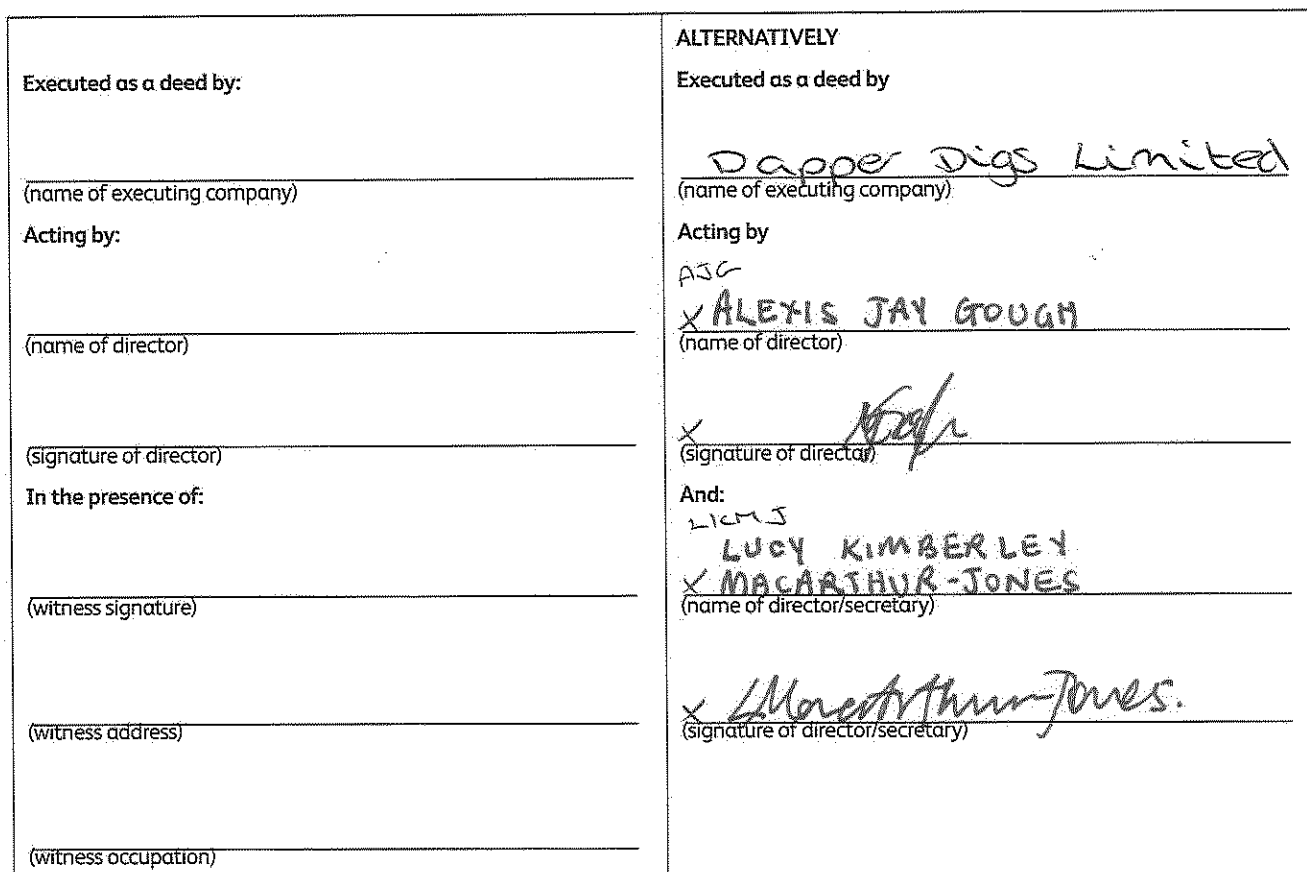 Executed as a deed by:
(name of executing company)
Acting by:
(name of director)
(signature of director)
In the presence of:
(witness signature)
(witness address)
(witness occupation)
ALTERNATIVELY
Executed as a deed by
Dapper Digs Limited
(name of executing company)
Acting by
AJG
X ALEXIS JAY GOUGH
(name of director)
X
(signature of director)
And:
LKMJ
LUCY KIMBERLEY
X MACARTHUR-JONES
(name of director/secretary)
X LMacArthur-Jones.
(signature of director/secretary)